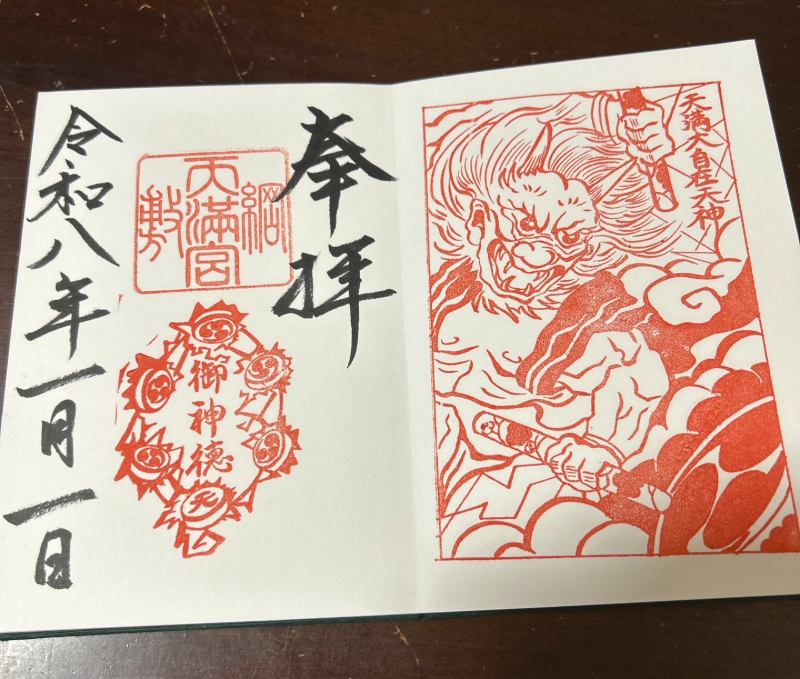 天満大自在天神
奉拝
綱敷天満宮
御神徳
天
令和八年一月一日